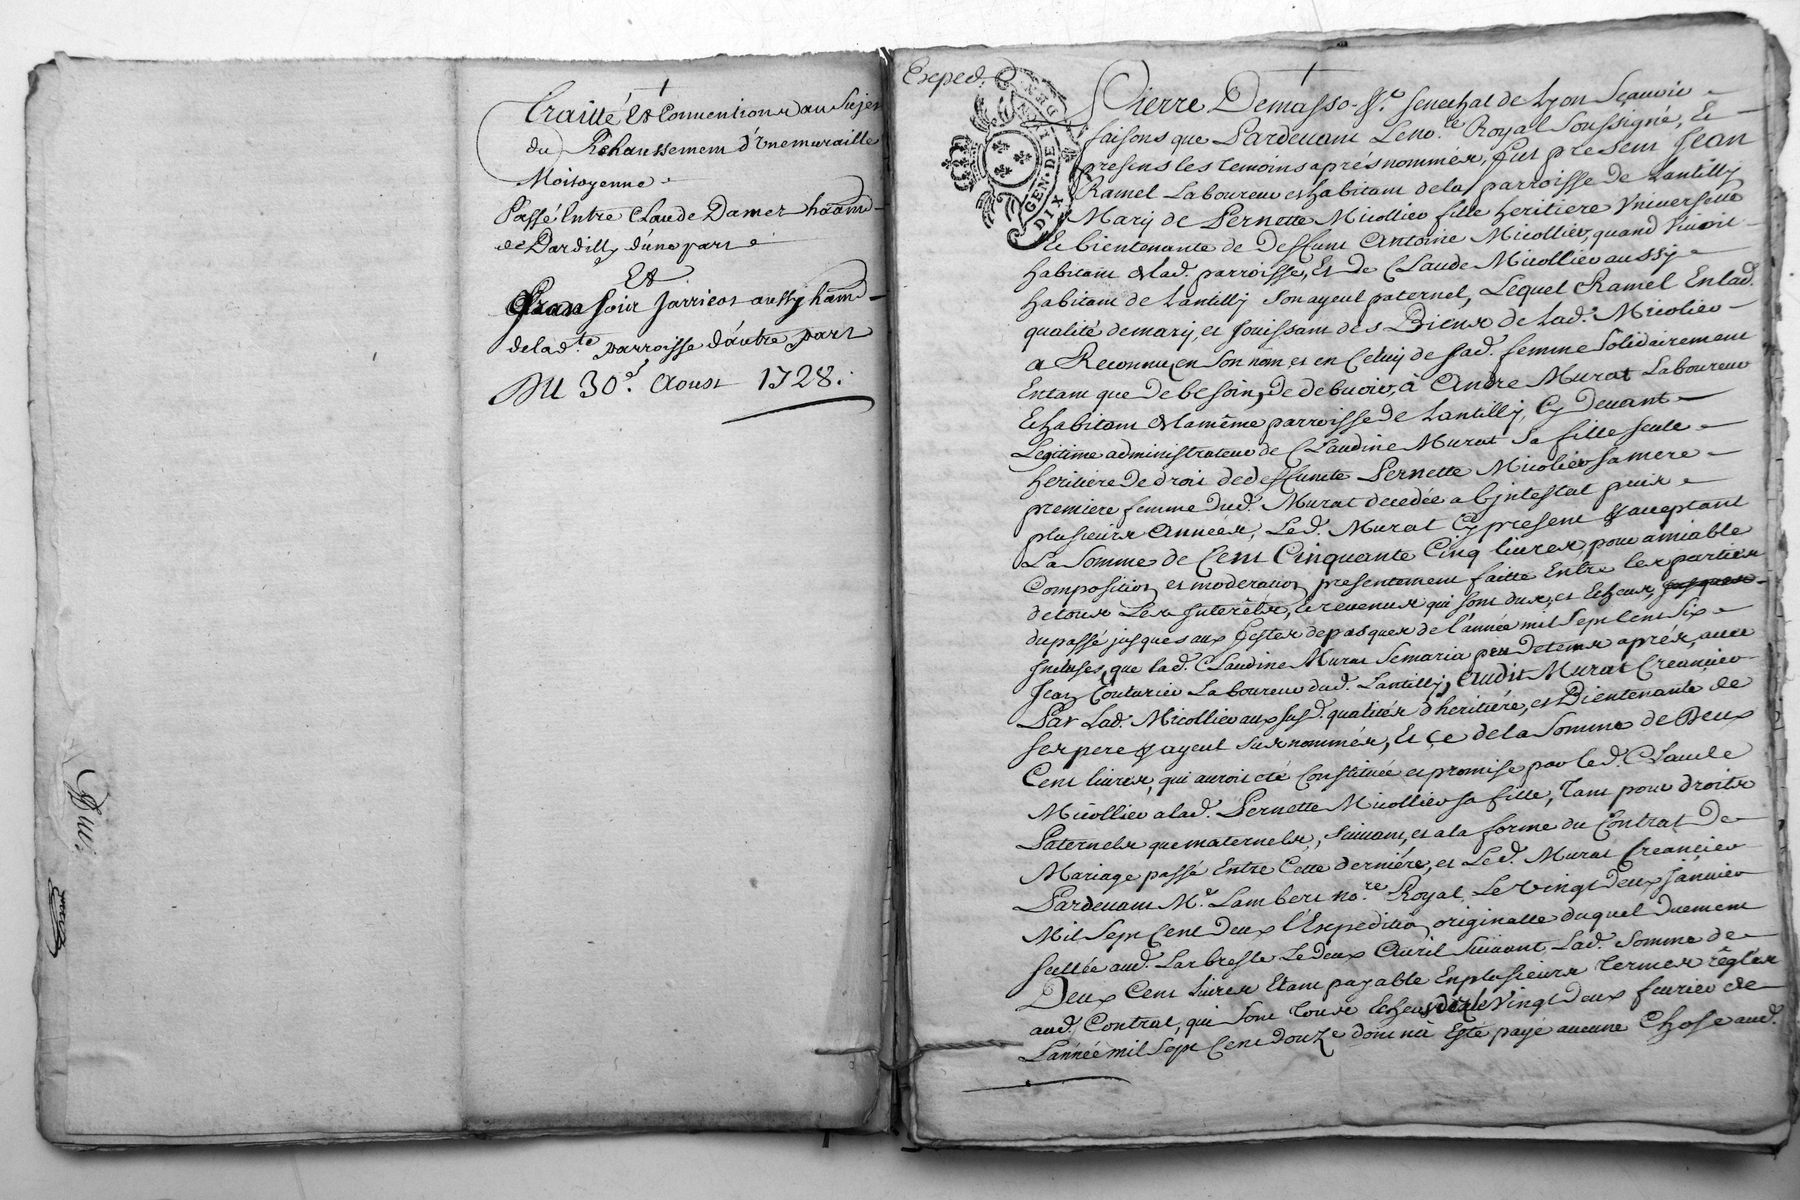 Traitté Et Conventions au Sujet
du Rehaussement d'Une muraille
Moitoyenne
Passé Entre Claude Damez habitd
de Dardilly d'une part
Et
François Jarricot aussy habitd
de lad.te parroisse d'autre part
DU 30.e Aoust 1728.
Exped.
GEN. DE
DIX
Pierre Demasso Sr. Senechal de Lyon Sçavoir
faisons que Pardevant Le no.re Royal Soussigné, Et
presens les temoins aprés nommés, fut present Jean
Ramel Laboureur et habitant de la parroisse de Lantilly
Mary de Pernette Micollier fille heritiere Universelle
Et bientenante de Deffunt Antoine Micollier, quand vivoit
habitant de lad. parroisse, Et de Claude Micollier aussy
habitant de Lantilly Son ayeul paternel, Lequel Ramel En lad.
qualité de mary, et Jouissant des Biens de Lad. Micolier
a Reconnu, en Son nom et en Celuy de Sad. femme Solidairement
Entant que de besoin, de debvoir, à André Murat Laboureur
Et habitant de la même parroisse de Lantilly, Cy Devant
Legitime administrateur de Claudine Murat Sa fille Seule
heritiere De droit de deffunte Pernette Micolier Sa mere
premiere femme dud. Murat decedée ab intestat puis
plusieurs Années, Led. Murat Cy present & acceptant
La Somme de Cent Cinquante Cinq livres, pour amiable
Composition et moderation presentement faitte Entre les parties
de tous Les Interêts, Et revenus qui sont dus, et Echeus, jusques
du passé jusques aux festes de pasques de l'année mil Sept Cent Six
Incluses, que lad. Claudine Murat Se maria peu De tems aprés, avec
Jean Couturier Laboureur dud. Lantilly, Audit Murat Creancier
Par Lad. Micollier aux susd. qualités d'heritiére, et Bientenante de
ses pere & ayeul surnommés, Et Çe de la Somme de Deux
Cent livres, qui auroit eté Constituée et promise par led. Claude
Micollier a lad. Pernette Micollier sa fille, Tant pour droits
Paternels que maternels, Suivant, et a la forme du Contrat De
Mariage passé Entre Cette derniére, et Led. Murat Creancier
Pardevant M.e Lambert no.re Royal, Le vingt Deux Janvier
Mil Sept Cent Deux l'Expeditio originalle duquel Duement
scellée aud. Larbresle Le deux Avril Suivant Lad. Somme de
Deux Cent livres Etant payable En plusieurs Termes reglés
aud. Contrat, qui sont Tous Echeus Vingt Deux fevrier de
L'année mil Sept Cent douze dont n'a Esté payé aucune Chose aud.